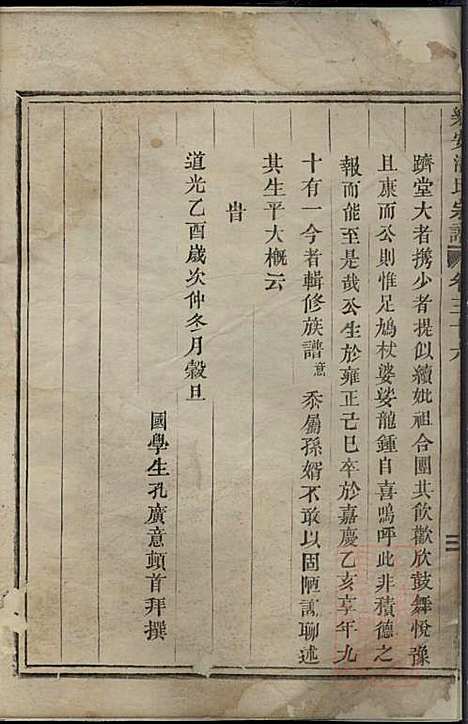 躋堂大者携少者提似續妣祖合團其飲歡欣鼓舞悅豫
且康而公則惟足鳩杖婆娑龍鍾自喜嗚呼此非積德之
報而能至是哉公生於雍正己巳卒於嘉慶乙亥享年九
十有一今者輯修族譜意忝屬孫婿不敢以固陋謝聊述
其生平大概云
旹
道光乙酉歲次仲冬月穀旦
國學生孔廣意頓首拜撰